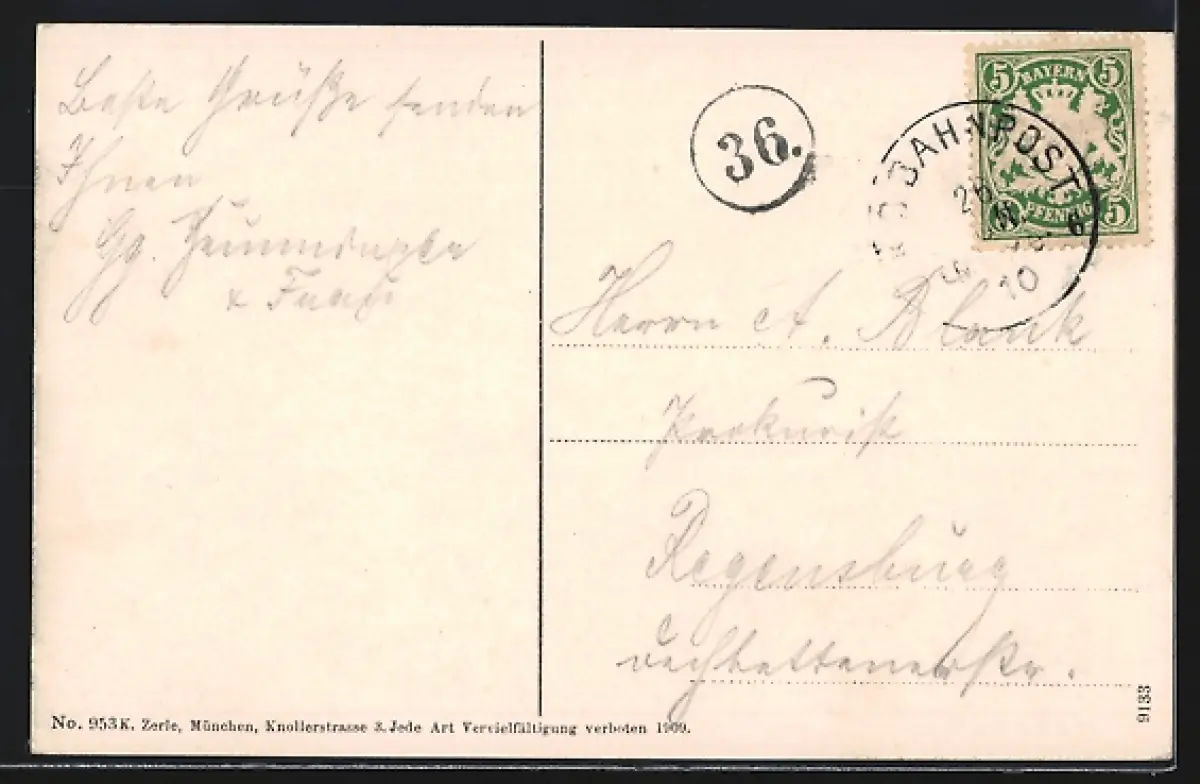 Beste Grüße senden
Ihnen
& Frau
36.
BAHNPOST
26
10
5 BAYERN 5
PFENNIG 5
Herrn A. Blank
Prokurist
Regensburg
Dechbettenerstr.
No. 953 K. Zerle, München, Knollerstrasse 3. Jede Art Vervielfältigung verboten 1909.
9133